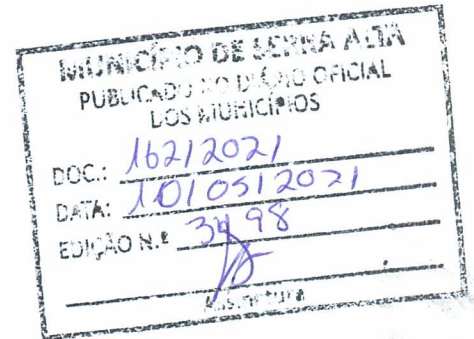 MUNICÍPIO DE SERRA ALTA
PUBLICADO NO DIÁRIO OFICIAL
DOS MUNICÍPIOS
DOC.: 162/2021
DATA: 10/05/2021
EDIÇÃO N.º 3498
Assinatura